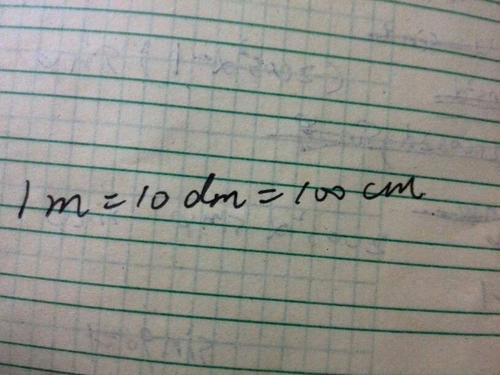 1 m = 10 dm = 100 cm